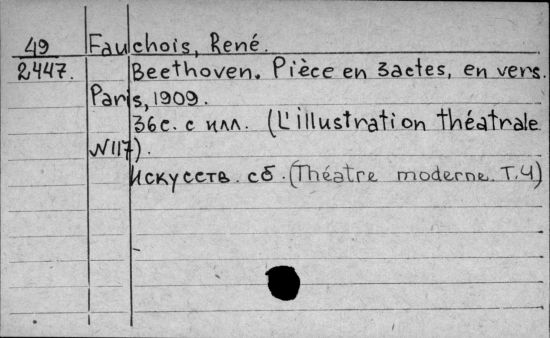 49 Fauchois, René.
2447. Beethoven. Pièce en 3actes, en vers.
Paris, 1909.
36с. с илл. (L'illustration théatrale
N117).
Искусств. сб. (Théatre moderne. T.4)